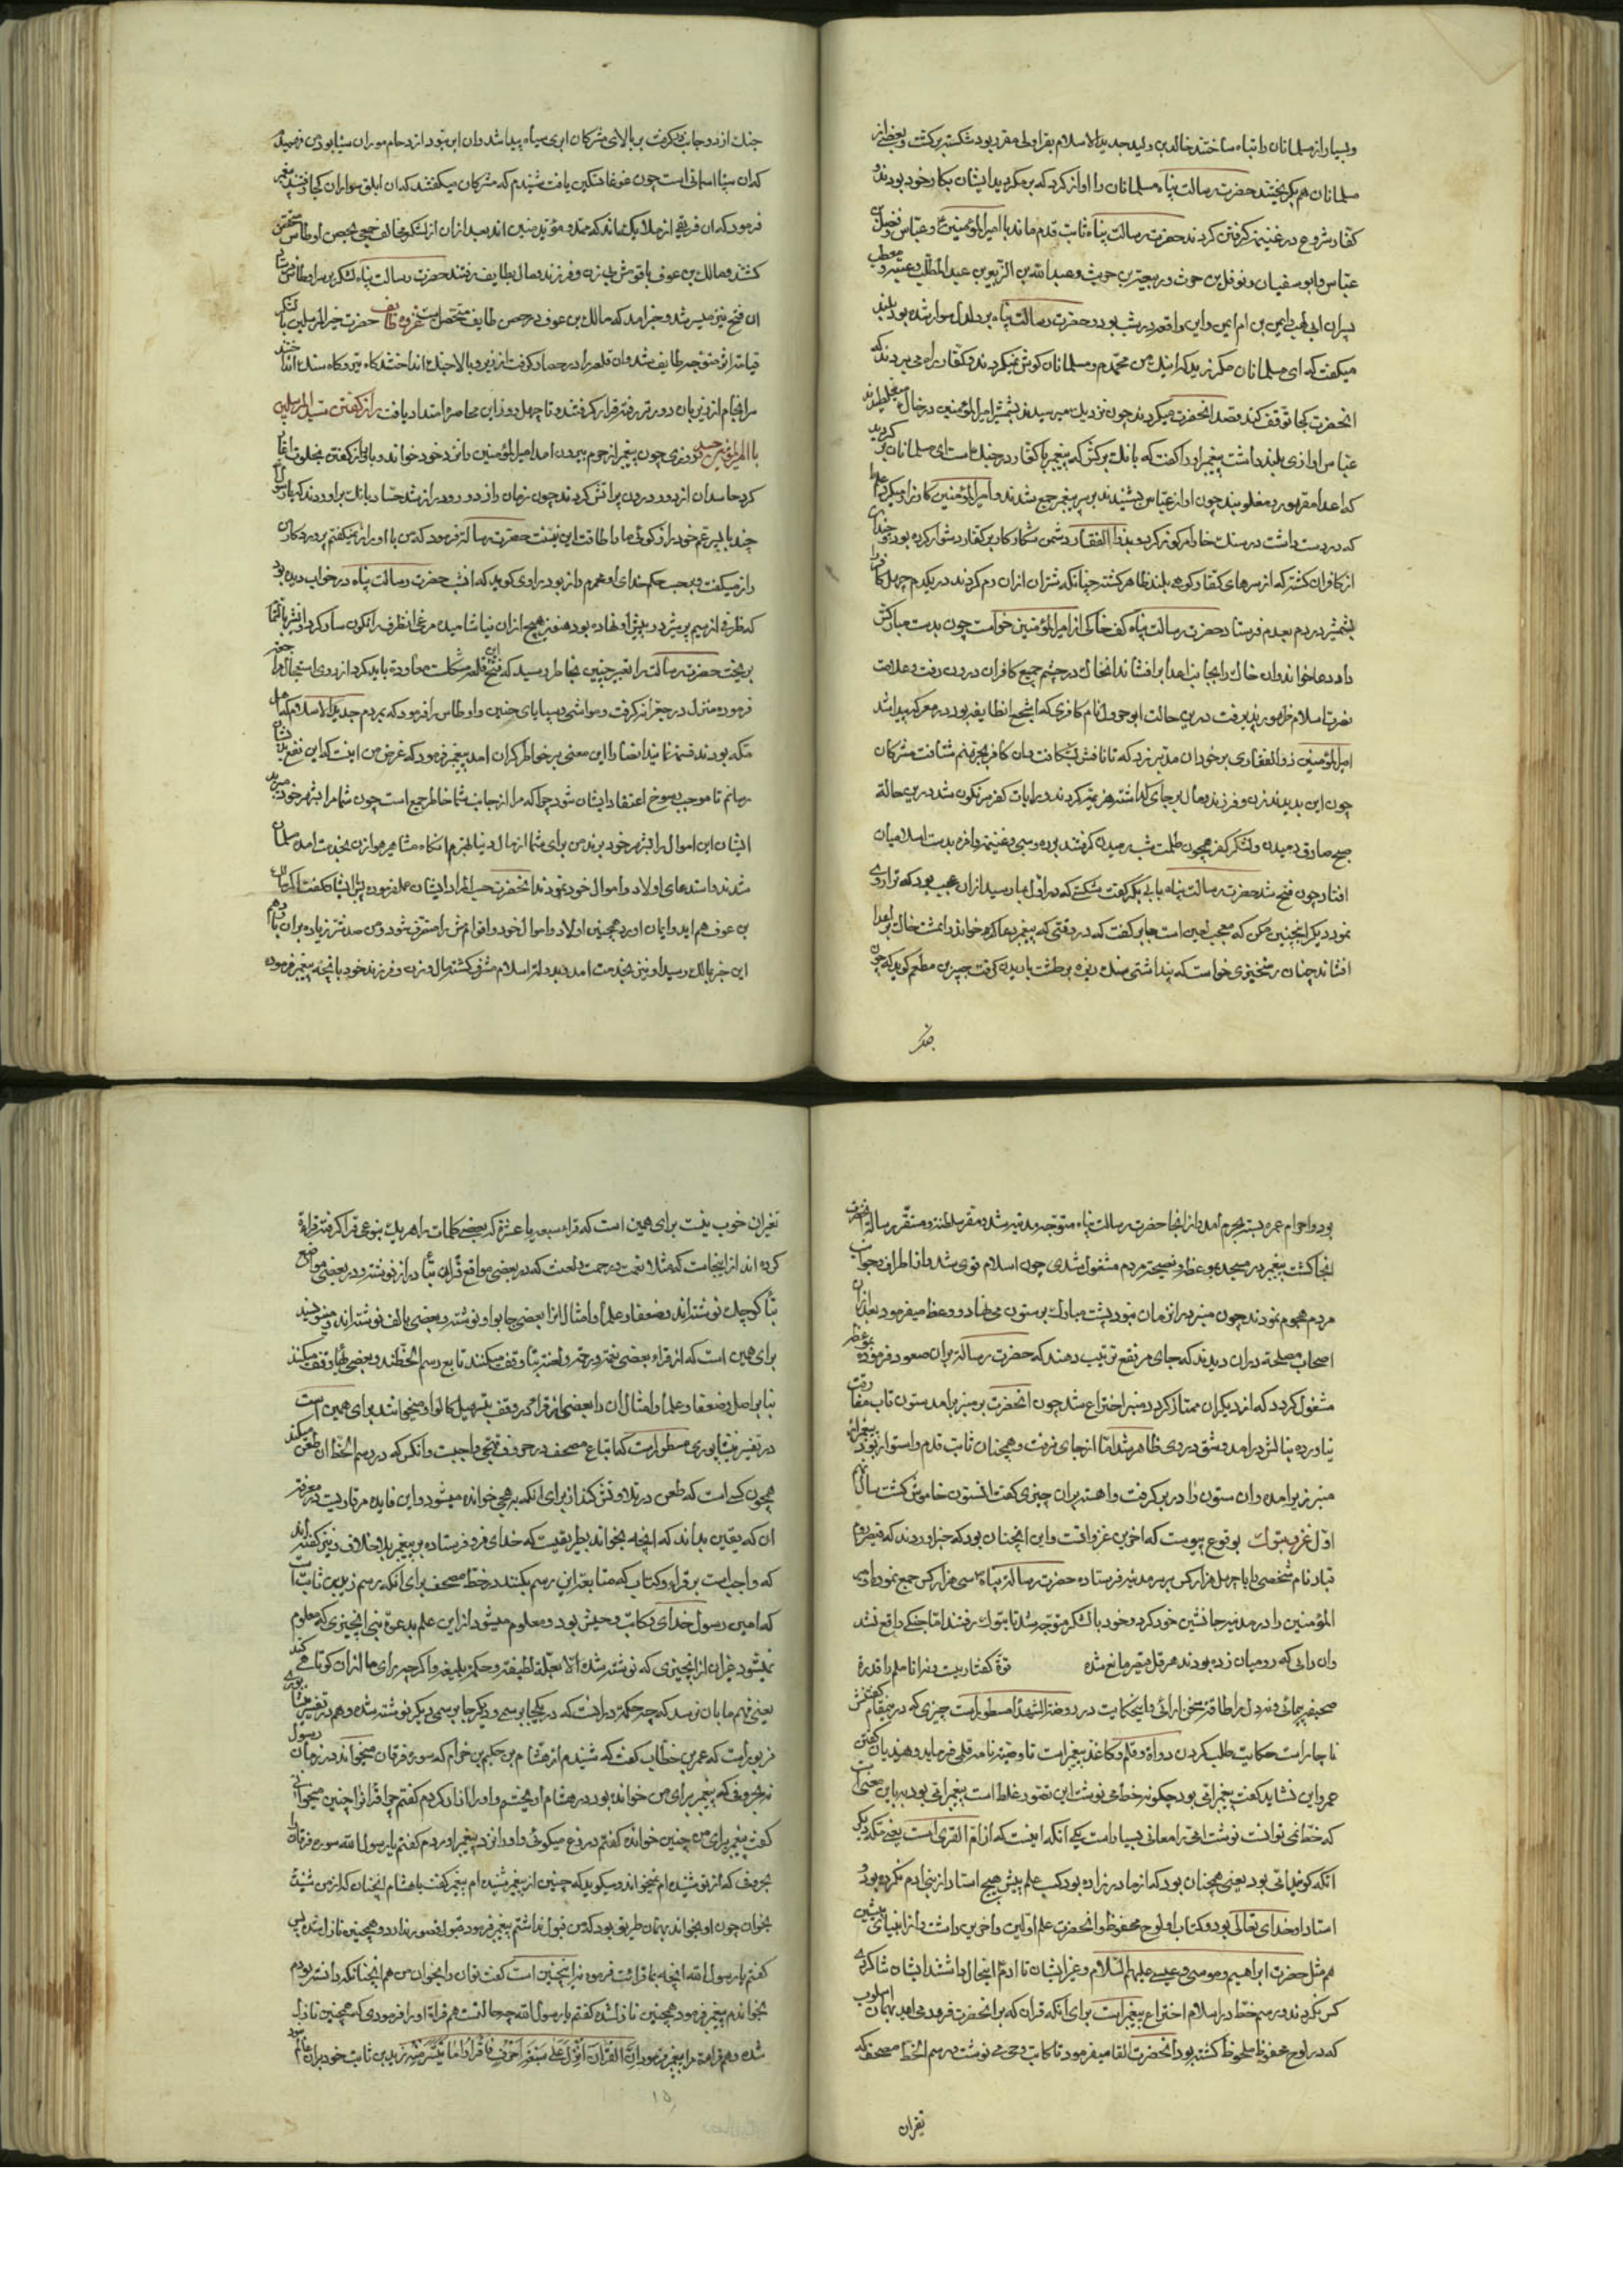 و بسیار از مسلمانان را تباه ساختند خالد بن ولید جدید الاسلام بقراولی مقرر بود شکسته برگشت و بعضی از
مسلمانان هم بگریختند حضرت رسالت پناه مسلمانان را اواز کرد که برمگردید ایشان بکار خود بودند و
کفار شروع در غنیمت گرفتن کردند حضرت رسالت پناه ثابت قدم ماند با امیر المؤمنین و عباس و فضل بن
عباس و ابو سفیان و نوفل بن حرث و ربیعة بن حرث و عبد الله بن الزبیر بن عبد المطلب و عتبه و معطب
پسران ابی لهب و ایمن بن ام ایمن و این واقعه در شب بود و حضرت رسالت پناه بر دلدل سوار شده بود بلند
میگفت که ای مسلمانان مگریزید که اینك من محمدم و مسلمانان گوش نمیکردند و کفار راه می بردند که
انحضرت کجا توقف کند و قصد انحضرت میکردند چون نزدیك میرسیدند بشمشیر امیر المؤمنین در خاك میغلطیدند
عباس اوازی بلند داشت پیغمبر او را گفت که بانك برکش که پیغمبر با کفار در جنك است ای مسلمانان برگردید
که اعدا مقهور و مغلوبند چون اواز عباس شنیدند بر سر پیغمبر جمع شدند و امیر المؤمنین کارزار میکرد
که در دست داشت در سنك خارا هم گوئر کرد و بذو الفقار دشمن شکار کار بر کفار دشوار کرده بود چندان
از کافران کشته که از سرهای کفار کوهی بلند ظاهر کشته چنانکه شتران ازان رم کردند در یکدم چهل کافر را
بشمشیر دو دم بعدم فرستاد حضرت رسالت پناه کف خاکی از امیر المؤمنین خواست چون بدست مبارکش
داد دعا خواند و ان خاك را بجانب اعدا بر افشاند ان خاك در چشم جمیع کافران درون رفت و علامت
نصرت اسلام ظهور پذیرفت درین حالت ابو جرول نام کافری که اشجع انطایفه بود در معرکه پیدا شد
امیر المؤمنین ذو الفقاری بر خود ان مدبر زد که تا نافش بشکافت و ان کافر بجهنم شتافت مشرکان
چون این بدیدند زن و فرزند و مال بر جای گذاشته هزیمت کردند و رایات کفر سرنگون شد درین حالة
صبح صادق دمیدن و لشکر کفر همچون ظلمت شب رمیدن گرفتند برده و سبی و غنیمت وافره بدست اسلامیان
افتاد چون فتح شد حضرت رسالت پناه بابی بکر گفت شکستی که در اول بما رسید ازان عجب بود که ترا روی
نمود دیگر اینچنین مکن که معجب لعین است جابر گفت که در وقتی که پیغمبر دعا کرده خواند و ان مشت خاك بر اعدا
افشاند چنان رستخیزی خواست که پنداشتی سنك ریزه بر طشت باریدن گرفت جبیر بن مطعم گوید که چون
جنك
جنك از دو جانب در گرفت بر بالای مشرکان ابری سیاه پیدا شد و ان ابر نبود ازدحام موران سیاه بود من فهمیدم
که ان سپاه اسمانی است چون غوغا تسکین یافت شنیدم که مشرکان میگفتند که ان ابلق سواران کجا رفتند پیغمبر
فرمود که ان فریقی از ملایك سمااند که ممد و مؤید منین اند بعد ازان از لشکر مخالف جمعی بحصن اوطاس متحصن
کشتند و مالك بن عوف با قومش بی زن و فرزند و مال بطایف رفتند حضرت رسالت پناه لشکر بر سر اوطاس فرستاد
ان فتح نیز میسر شد و خبر امد که مالك بن عوف در حصن طایف متحصن است غزوه طایف حضرت خیر المرسلین با لشکر
قیامت اثر متوجه طایف شد و ان قلعه را در حصار گرفت از زیر و بالا جنك انداختند گاه تیر و گاه سنك انداختند
سرانجام از وزیران دورتر رفته قرار گرفتند و تا چهل روز این محاصره امتداد یافت راز گفتن سید المرسلین
با امیر المؤمنین حیدر روزی چون پیغمبر از حرم بیرون امد امیر المؤمنین را نزد خود خواند و با او راز گفتن بخلوت اغاز
کرد حاسدان از دور درون پر اتش کردند چون زمان راز دور و دراز شد حساد بانك براوردند که یا رسول
چند با پسر عم خود راز گوئی ما را طاقت این نیست حضرت رسالة فرمود که من با او راز نمیگفتم پروردگار ان
راز میگفت و بموجب حکم خدای او محرم راز بود راوی گوید که انشب حضرت رسالت پناه در خواب دیده بود
که ظرفی از سیم پر شیر در پیش او نهاده بود هنوز هیچ ازان نیاشامیده مرغی انظرف را نگون سار کرد و انشیر بالتمام
بریخت حضرت رسالت را تعبیر چنین بخاطر رسید که فتح این قلعه مشکلست معاودة باید کرد از روی استعجال جعرانه
فرموده منزل در جعرانه گرفت و مواشی و سبایای حنین و اوطاس را فرمود که بمردم جدید الاسلام که اهل
مکه بودند قسمت نمایند انصار را این معنی بر خاطر گران امد پیغمبر فرمود که غرض من اینست که این نفع بدیشان
رسانم تا موجب رسوخ اعتقاد ایشان شود چرا که مرا از جانب شما خاطر جمع است چون شما مرا بشهر خود میبرید
ایشان این اموال را بشهر خود برند من برای شما از مال دنیا بهترم انگاه مشاهیر هوازن بخدمت امده مسلمان
شدند و استدعای اولاد و اموال خود نمودند انحضرت حسب المراد ایشان عمل فرمود پس ایشان گفت اگر مالك
بن عوف هم اید و ایمان اورد همچنین اولاد و اموال خود و اقوامش را متصرف شود و من صد شتر زیاده بران باو دهم
این خبر بمالك رسید او نیز بخدمت امد و بدولة اسلام مشرف کشته مال و زن و فرزند خود بانچه پیغمبر فرموده
بود و احرام عمره بسته بحرم امد و ازانجا حضرت رسالت پناه متوجه مدینه شد و مقر سلطنت و مستقر رسالة
انجا گشت پیغمبر در مسجد بوعظ و نصیحت مردم مشغول شدی چون اسلام قوی شد و از اطراف و جوانب
مردم هجوم نمودند چون منبر در انزمان نبود پشت مبارك بر ستون می نهاد و وعظ میفرمود بعد ازان
اصحاب مصلحة دران دیدند که جای مرتفع ترتیب دهند که حضرت رسالة بران صعود فرموده بوعظ
مشغول گردد که از دیگران ممتاز گردد منبر اختراع شد چون انحضرت بر منبر برامد ستون تاب مفارقت
نیاورده بنالش درامد و شق در وی ظاهر شد اما از جای نرفت و همچنان ثابت قدم و استوار بود پیغمبر از
منبر زیر امده و ان ستون را در بر گرفت و اهسته بران چیزی گفت انستون خاموش گشت سال نهم
اول غزوه تبوك بوقوع پیوست که اخرین غزواتست و این انچنان بود که خبر اوردند که قیصر روم
قباد نام شخصی را با چهل هزار کس بر سر مدینه فرستاده حضرت رسالة پناه سی هزار کس جمع نمود و امیر
المؤمنین را در مدینه جانشین خود کرد و خود با لشکر متوجه شد تا بتبوك رفتند اما جنگی واقع نشد
وان رائی که رومیان زده بودند هرقل قیصر مانع شده قوة گفتار نیست و نه انامل را قدرة
صحیفه پیمائی و نه دل را طاقة سخن ارائی و اینحکایت در روضة الشهدا مسطور است چیزی که درینمقام گفتنش
ناچار است حکایت طلب کردن دواة و قلم و کاغذ پیغمبر است تا وصیت نامه قلمی فرماید و هذیان گفتن
عمر و این نشاید گفت پیغمبر امی بود چگونه خط می نوشت این تصور غلط است پیغمبر امی بود نه باین معنی است
که خط نمی توانست نوشت امی را معانی بسیار است یکی انکه امیست که از ام القری است یعنی مکه دیگر
انکه گوئیا امی بود یعنی همچنان بود که از مادر زاده بود کسب علم پیش هیچ استاد از بنی ادم نکرده بود و
استاد او خدای تعالی بود و کتاب او لوح محفوظ و انحضرت علم اولین و اخرین داشت و از انبیای پیشین
هم مثل حضرت ابراهیم و موسی و عیسی علیهم السلام و غیر ایشان تا ادم اینحال داشتند ایشان شاگردی
کس نکردند و رسم خط در اسلام اختراع پیغمبر است برای انکه قران که بر انحضرت فرود می امد بهمان اسلوب
که در لوح محفوظ ملحوظ گشته بود انحضرت القا میفرمود تا کاتب وحی می نوشت در رسم الخط مصحف که
تغیران
تغیران خوب نیست برای همین است که قراء سبعه یا عشره که بعضی کلمات را هر یك بنوعی فرا گرفته قراءة
کرده اند از اینجاست که مثلا نعمت و رحمت و لعنت که در بعضی مواقع قران بتاء دراز نوشته و در بعضی مواقع
بتاء کوچك نوشته اند و ضعفاو علما و امثال انرا بعضی جا بواو نوشته و بعضی بالف نوشته اند
برای همین است که از قراء بعضی نعمة و رحمة و لعنة بتا وقف میکنند تابع رسم الخطند و بعضی بها وقف میکنند
بنا بر اصل و ضعفاو علما و امثال ان را بعضی از قراء در وقف بتسهیل کالواو میخوانند برای همین است
در تفسیر نیشابوری مسطور است که اتباع مصحف در حروف تهجی واجبست و انکس که در رسم الخط ان طعن میکند
همچون کسی است که طعن در تلاوتش کند از برای انکه بهجی خوانده میشود و این فایده مر قاریست در معرفة
ان که یقین بداند که انچه بخواند بطریقیست که خدای فرو فرستاده بر پیغمبر بلا خلاف و نیز گفته اند
که واجب است بر قراء و کتاب که متابعة این رسم بکنند در خط مصحف برای انکه رسم زید بن ثابت
که امین رسول خدای و کاتب وحیش بود و معلوم میشود از این علم بدعوة نبی انچیزی که معلوم
نمیشود غیر ان از انچیزی که نوشته شده الا بعلة لطیفه و حکمة بلیغه و اگر چه رای ما از ان کوتاهی کند
یعنی فهم ما بان نرسد که چه حکمة دران است که در یکجا برسمی و دیگر جا برسمی دیگر نوشته شده و هم در تفسیر نیشابوری
مزبور است که عمر بن خطاب گفت که شنیدم از هشام بن حکیم بن حزام که سوره فرقان میخواند در زمان رسول
نه بحروفی که پیغمبر برای من خوانده بود در هشام اویختم و او را انکار کردم گفتم چرا قران را چنین میخوانی
گفت پیغمبر برای من چنین خوانده گفتم دروغ میگوئی و او را نزد پیغمبر اوردم گفتم یا رسول الله سوره فرقان را
بحروفی که از تو شنیده ام نمیخواند و میگوید که چنین از پیغمبر شنیده ام پیغمبر گفت یا هشام انچنان که از من شنیدی
بخوان چون او بخواند بهمان طریق بود که من قبول نداشتم پیغمبر فرمود قبول قصور ندارد و همچنین نازل شده پس
گفتم یا رسول الله انچه بما قرائت فرمود نه اینچنین است گفت توان را بخوان من هم انچنانکه دانسته بودم
بخواندم پیغمبر فرمود همچنین نازلشده گفتم یا رسول الله چه حالتست هر قراءة او را فرمودی که همچنین نازل
شده و هم قراءة مرا پیغمبر فرمود ان القران انزل علی سبعة احرف فاقراوا ما تیسر منه زید بن ثابت خود بران عالم بود